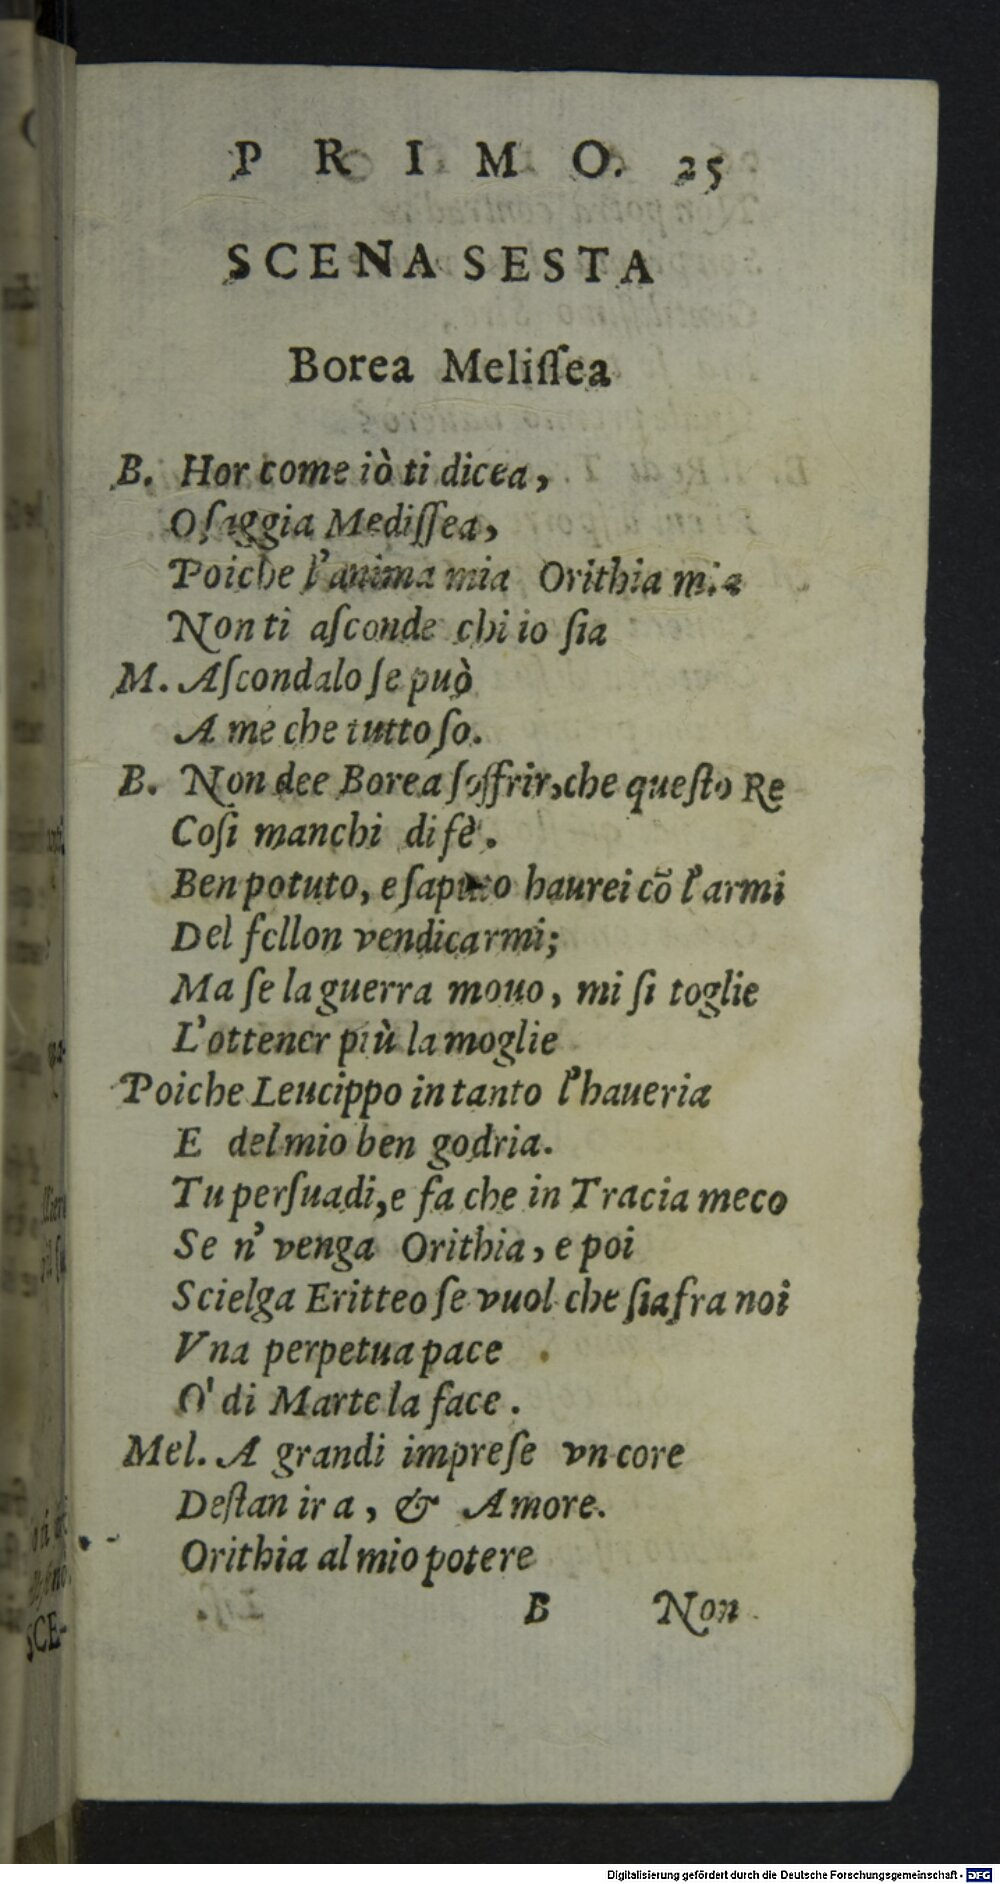 PRIMO. 25
SCENA SESTA
Borea Meliſſea
B. Hor come iò ti dicea,
O ſaggia Mediſſea,
Poiche l'anima mia Orithia mia
Non ti aſconde chi io ſia
M. Aſcondalo ſe può
A me che tutto ſo.
B. Non dee Borea ſoffrir, che queſto Re
Coſi manchi di fè.
Ben potuto, e ſaputo haurei cō l'armi
Del fellon vendicarmi;
Ma ſe la guerra mouo, mi ſi toglie
L'ottener più la moglie
Poiche Leucippo in tanto l'haueria
E del mio ben godria.
Tu perſuadi, e fa che in Tracia meco
Se n' venga Orithia, e poi
Scielga Eritteo ſe vuol che ſia fra noi
Vna perpetua pace
O' di Marte la face.
Mel. A grandi impreſe vn core
Deſtan ira, & Amore.
Orithia al mio potere
B Non
SCE-
Digitalisierung gefördert durch die Deutsche Forschungsgemeinschaft - DFG